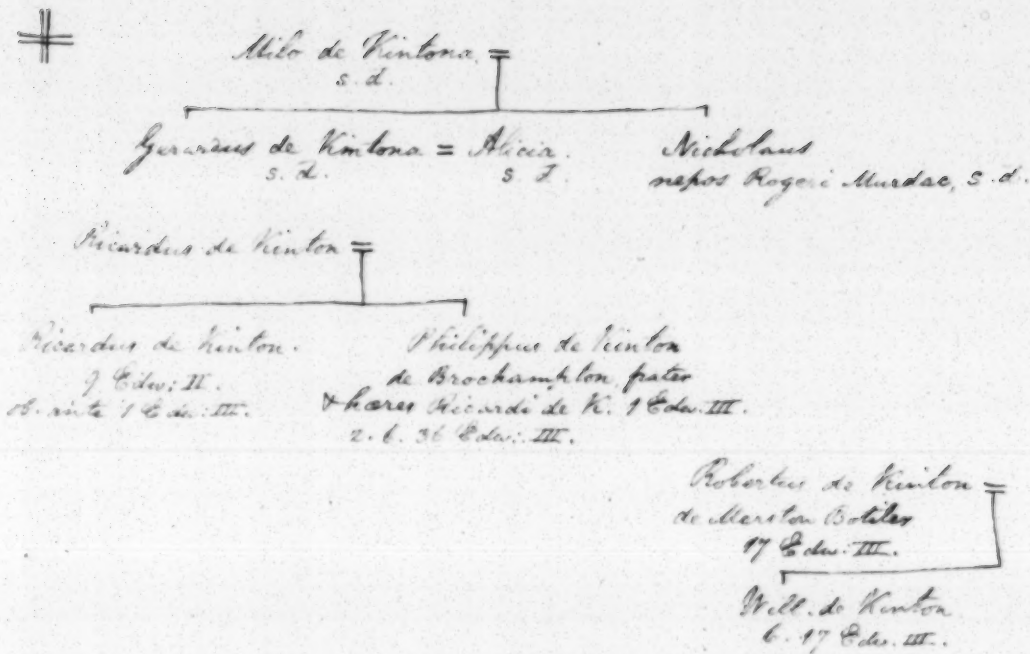 Milo de Kintona =
s. d.
Gerardus de Kintona = Alicia.
s. d.
Nicholaus
nepos Rogeri Murdac, s. d.
Ricardus de Kinton =
Ricardus de Kinton.
Edw: II.
ob. ante 1 Edw: III.
Philippus de Kinton
de Brochampton, frater
& hæres Ricardi de K. 1 Edw. III.
2. 6. 36 Edw: III.
Robertus de Kinton =
de Merston Botiler
17 Edw: III.
Will. de Kinton
6. 17 Edw. III.